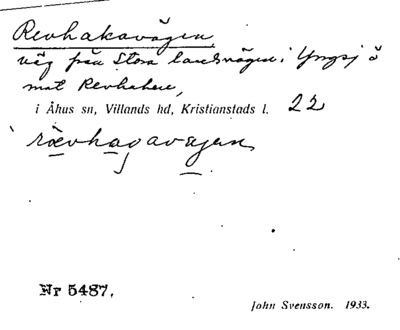 Revhakavägen
väg från Stora landsvägen i Yngsjö
mot Revhaken,
i Åhus sn, Villands hd, Kristianstads l. 22
Nr 5487.
John Svensson. 1933.